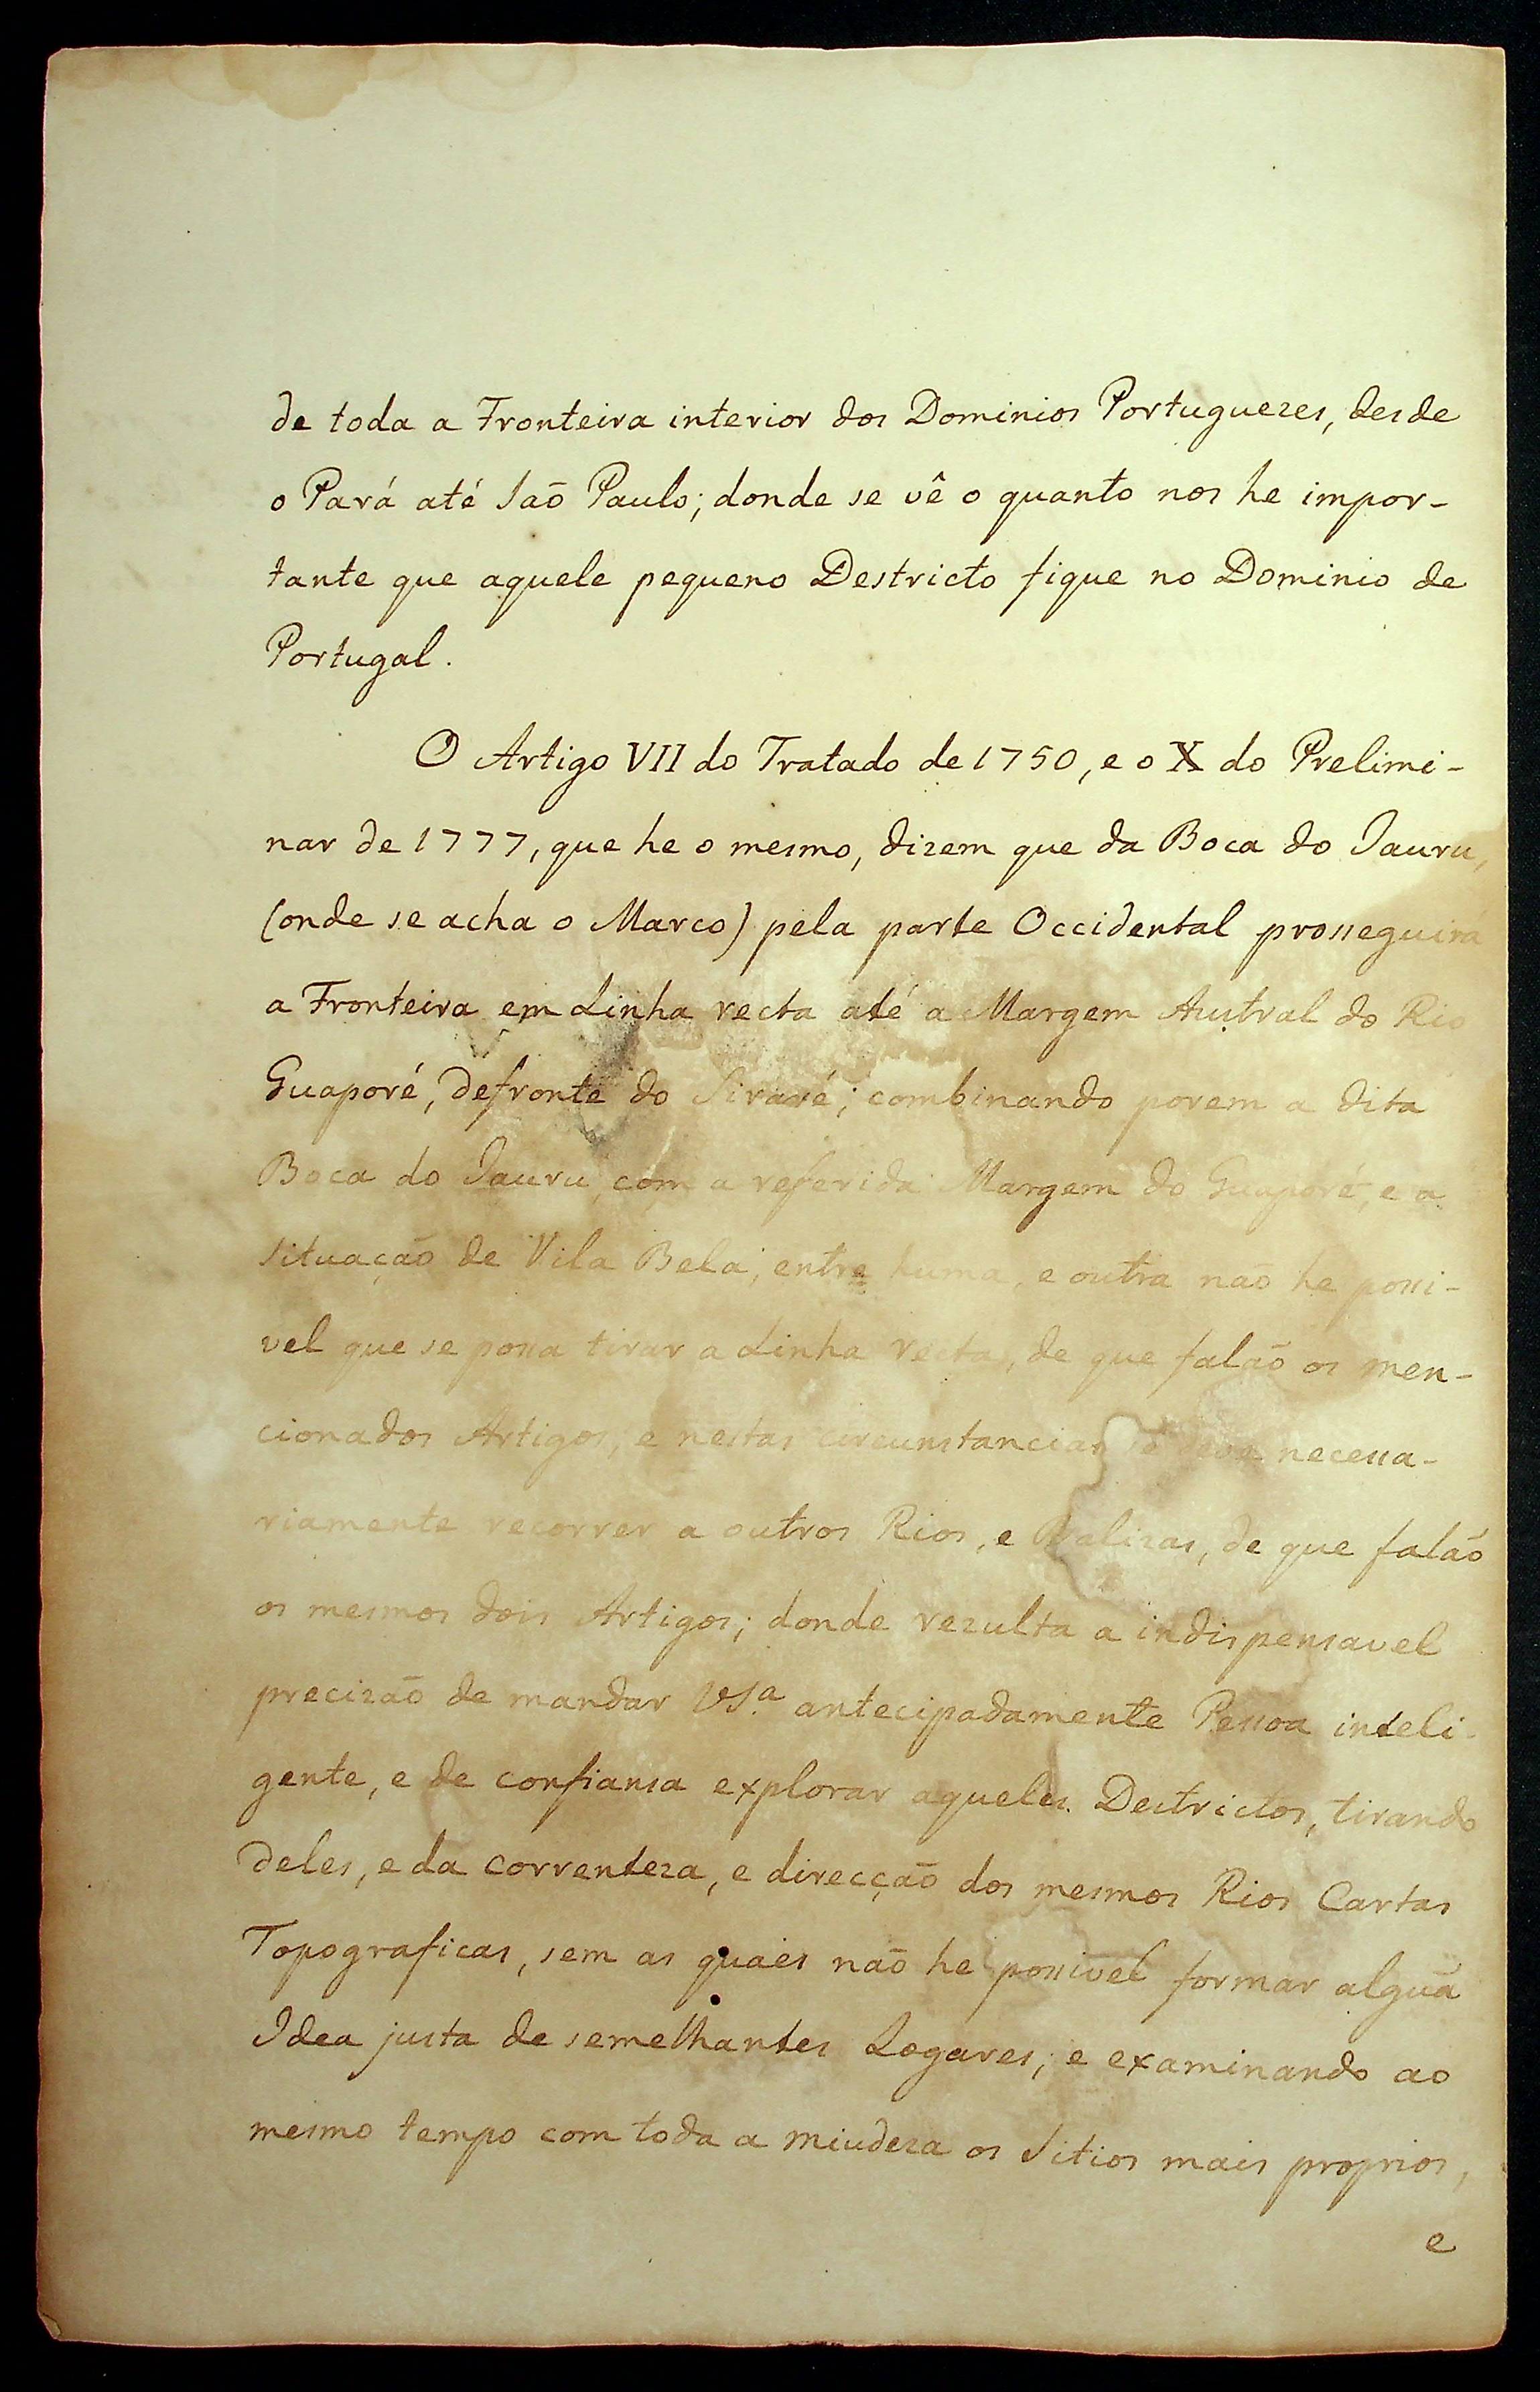 de toda a Fronteira interior dos Dominios Portuguezes, desde
o Pará até Saõ Paulo; donde se vê o quanto nos he impor-
tante que aquele pequeno Destricto fique no Dominio de
Portugal.
O Artigo VII do Tratado de 1750, e o X do Prelimi-
nar de 1777, que he o mesmo, dizem que da Boca do Jauru,
(onde se acha o Marco) pela parte Occidental prosseguira
a Fronteira em Linha recta até a Margem Austral do Rio
Guaporé, defronte do Sararé; combinando porem a dita
Boca do Jauru, com a referida Margem do Guaporé, e a
situação de Vila Bela, entre huma, e outra naõ he possi-
vel que se possa tirar a Linha recta, de que falaõ os men-
cionados Artigos, e nestas circunstancias se deve necessa-
riamente recorrer a outros Rios, e Balizas, de que falaõ
os mesmos dois Artigos; donde rezulta a indispensavel
precizaõ de mandar VS.ª antecipadamente Pessoa inteli-
gente, e de confiansa explorar aqueles Destrictos, tirando
deles, e da correnteza, e direcçaõ dos mesmos Rios Cartas
Topograficas, sem as quaes naõ he possivel formar alguã
Idea justa de semelhantes Logares; e examinando ao
mesmo tempo com toda a miudeza os Sitios mais proprios,
e